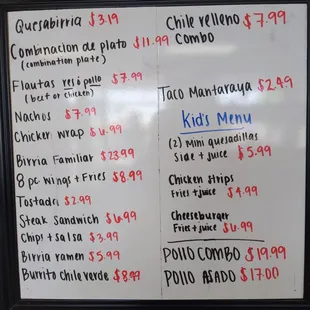 Quesabirria $3.19
Combinacion de plato $11.99
(combination plate)
Flautas res ó pollo $7.99
(beef or chicken)
Nachos $7.99
Chicken wrap $6.99
Birria Familiar $23.99
8 pc. wings + Fries $8.99
Tostadas $2.99
Steak Sandwich $6.99
Chips + salsa $3.99
Birria ramen $5.99
Burrito Chile verde $8.99
Chile relleno $7.99
Combo
Taco Mantaraya $2.49
Kid's Menu
(2) Mini quesadillas
Side + juice $5.99
Chicken strips
Fries + juice $4.99
Cheeseburger
Fries + juice $6.99
POLLO COMBO $19.99
POLLO ASADO $17.00